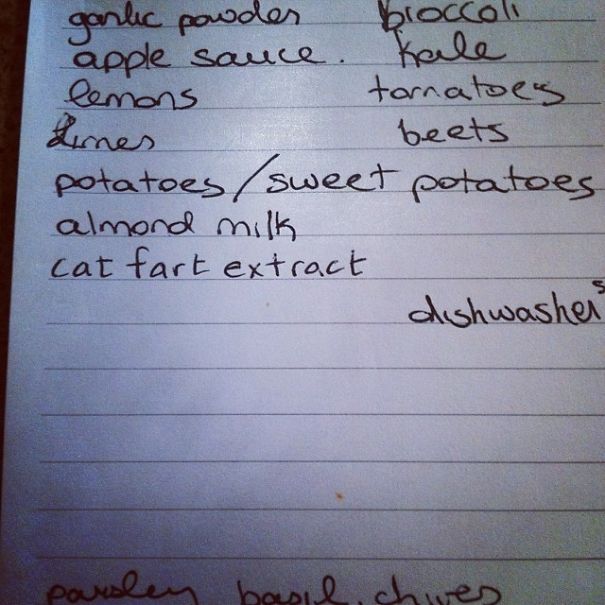 garlic powder broccoli
apple sauce. kale
lemons tomatoes
limes beets
potatoes/sweet potatoes
almond milk
cat fart extract
dishwasher s
parsley basil, chives